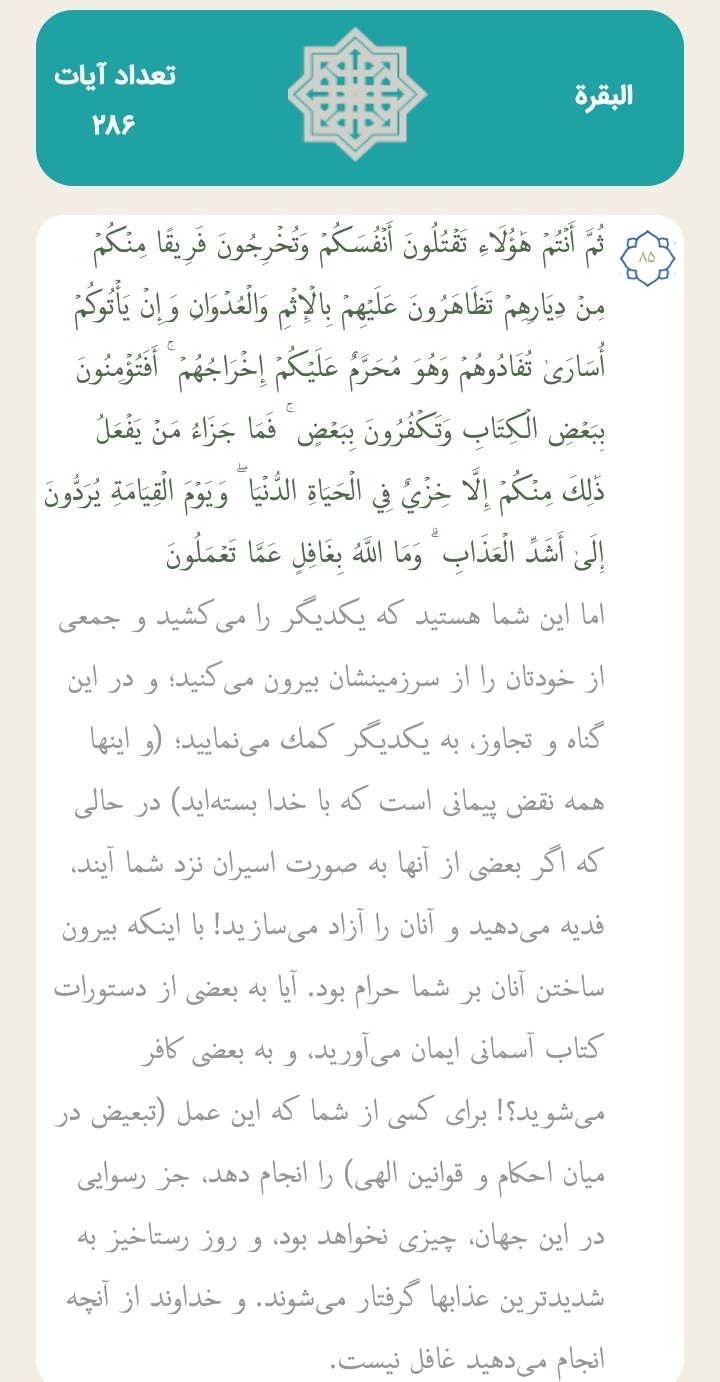 البقرة
تعداد آیات
۲۸۶
۸۵
ثُمَّ أَنْتُمْ هَٰؤُلَاءِ تَقْتُلُونَ أَنْفُسَكُمْ وَتُخْرِجُونَ فَرِيقًا مِنْكُمْ
مِنْ دِيَارِهِمْ تَظَاهَرُونَ عَلَيْهِمْ بِالْإِثْمِ وَالْعُدْوَانِ وَإِنْ يَأْتُوكُمْ
أُسَارَىٰ تُفَادُوهُمْ وَهُوَ مُحَرَّمٌ عَلَيْكُمْ إِخْرَاجُهُمْ ۚ أَفَتُؤْمِنُونَ
بِبَعْضِ الْكِتَابِ وَتَكْفُرُونَ بِبَعْضٍ ۚ فَمَا جَزَاءُ مَنْ يَفْعَلُ
ذَٰلِكَ مِنْكُمْ إِلَّا خِزْيٌ فِي الْحَيَاةِ الدُّنْيَا ۖ وَيَوْمَ الْقِيَامَةِ يُرَدُّونَ
إِلَىٰ أَشَدِّ الْعَذَابِ ۗ وَمَا اللَّهُ بِغَافِلٍ عَمَّا تَعْمَلُونَ
اما این شما هستید که یکدیگر را می‌کشید و جمعی
از خودتان را از سرزمینشان بیرون می‌کنید؛ و در این
گناه و تجاوز، به یکدیگر کمك می‌نمایید؛ (و اینها
همه نقض پیمانی است که با خدا بسته‌اید) در حالی
که اگر بعضی از آنها به صورت اسیران نزد شما آیند،
فدیه می‌دهید و آنان را آزاد می‌سازید! با اینکه بیرون
ساختن آنان بر شما حرام بود. آیا به بعضی از دستورات
کتاب آسمانی ایمان می‌آورید، و به بعضی کافر
می‌شوید؟! برای کسی از شما که این عمل (تبعیض در
میان احکام و قوانین الهی) را انجام دهد، جز رسوایی
در این جهان، چیزی نخواهد بود، و روز رستاخیز به
شدیدترین عذابها گرفتار می‌شوند. و خداوند از آنچه
انجام می‌دهید غافل نیست.